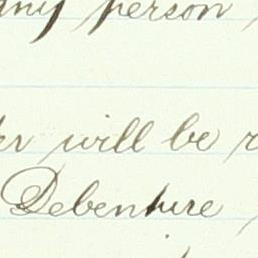 any person
will be
Debenture